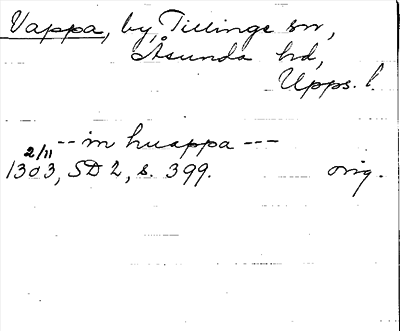 Vappa, by, Tillinge sn,
Åsunda hd,
Upps. l.
-- in huappa ---
2/11
1303, SD 2, s. 399. orig.